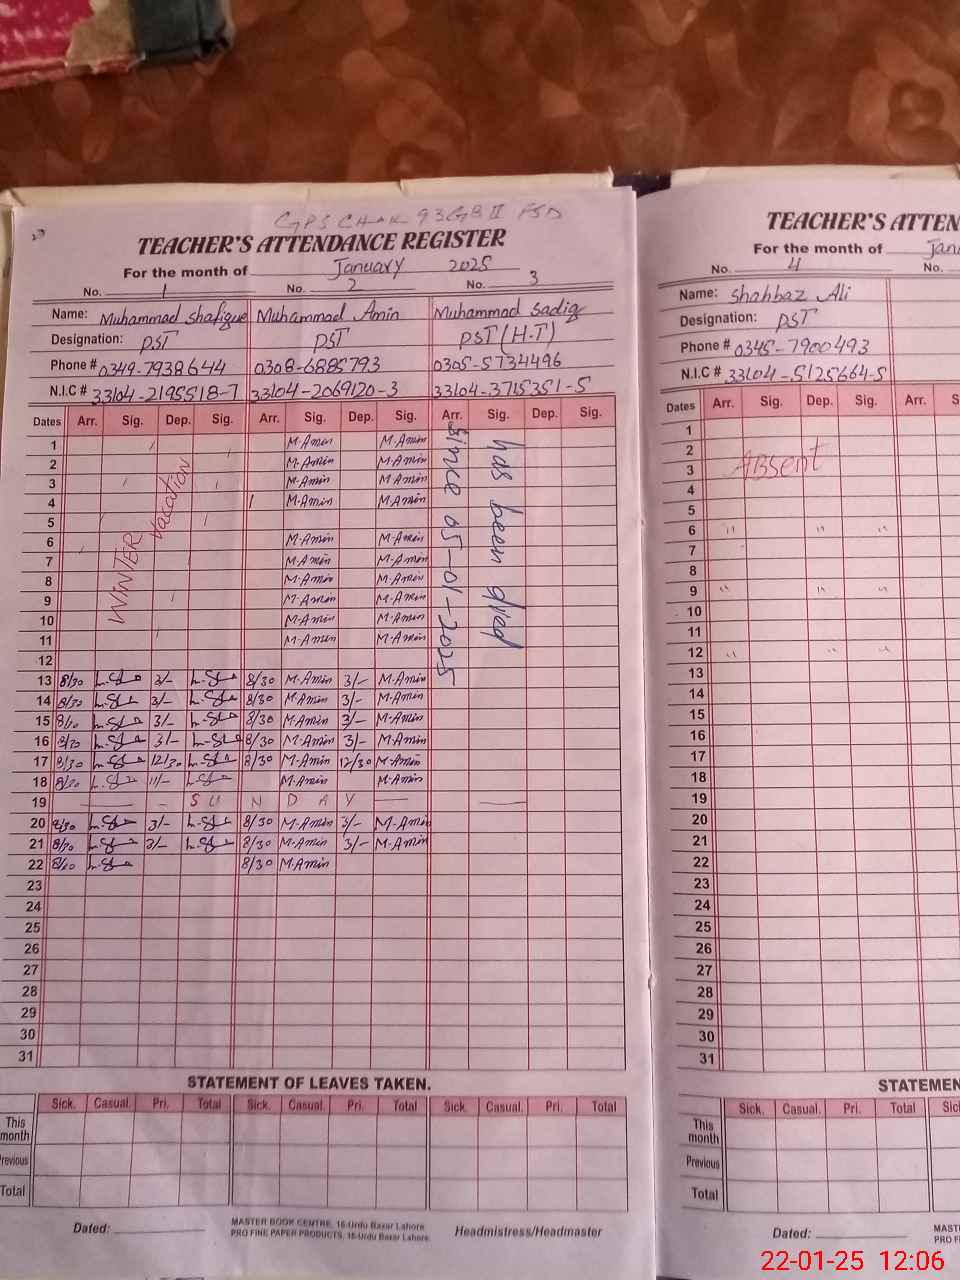 GPS CHAK 93GB II FSD
TEACHER'S ATTENDANCE REGISTER
For the month of January 2025
No. 1 No. 2 No. 3
Name: Muhammad Shafique Muhammad Amin Muhammad Sadiq
Designation: PST PST PST (H.T)
Phone # 0349-7938644 0308-6885793 0305-5734496
N.I.C # 33104-2195518-7 33104-2069120-3 33104-3715351-5
Dates Arr. Sig. Dep. Sig. Arr. Sig. Dep. Sig. Arr. Sig. Dep. Sig.
WINTER vacation
Since 05-01-2025
has been died
1 M.Amin M.Amin
2 M.Amin M.Amin
3 M.Amin M.Amin
4 M.Amin M.Amin
5
6 M.Amin M.Amin
7 M.Amin M.Amin
8 M.Amin M.Amin
9 M.Amin M.Amin
10 M.Amin M.Amin
11 M.Amin M.Amin
12
13 8/30 3/- 8/30 M.Amin 3/- M.Amin
14 8/30 3/- 8/30 M.Amin 3/- M.Amin
15 3/- 8/30 M.Amin 3/- M.Amin
16 8/30 3/- 8/30 M.Amin 3/- M.Amin
17 8/30 12/30 8/30 M.Amin 12/30 M.Amin
18 8/30 11/- M.Amin M.Amin
19 SUNDAY
20 8/30 3/- 8/30 M.Amin 3/- M.Amin
21 8/30 3/- 8/30 M.Amin 3/- M.Amin
22 8/30 M.Amin
23
24
25
26
27
28
29
30
31
STATEMENT OF LEAVES TAKEN.
Sick. Casual. Pri. Total Sick. Casual. Pri. Total Sick. Casual. Pri. Total
This month
Previous
Total
Dated:
MASTER BOOK CENTRE, 16-Urdu Bazar Lahore
PRO FINE PAPER PRODUCTS, 16-Urdu Bazar Lahore.
Headmistress/Headmaster
TEACHER'S ATTEN
For the month of Jan
No. 4 No.
Name: Shahbaz Ali
Designation: PST
Phone # 0345-7900493
N.I.C # 33104-5125664-5
Dates Arr. Sig. Dep. Sig. Arr. S
1
2
3 ABsent
4
5
6 " " "
7
8
9 " " "
10
11
12 " " "
13
14
15
16
17
18
19
20
21
22
23
24
25
26
27
28
29
30
31
STATEMEN
Sick. Casual. Pri. Total Sic
This month
Previous
Total
Dated:
MAST
PRO F
22-01-25 12:06